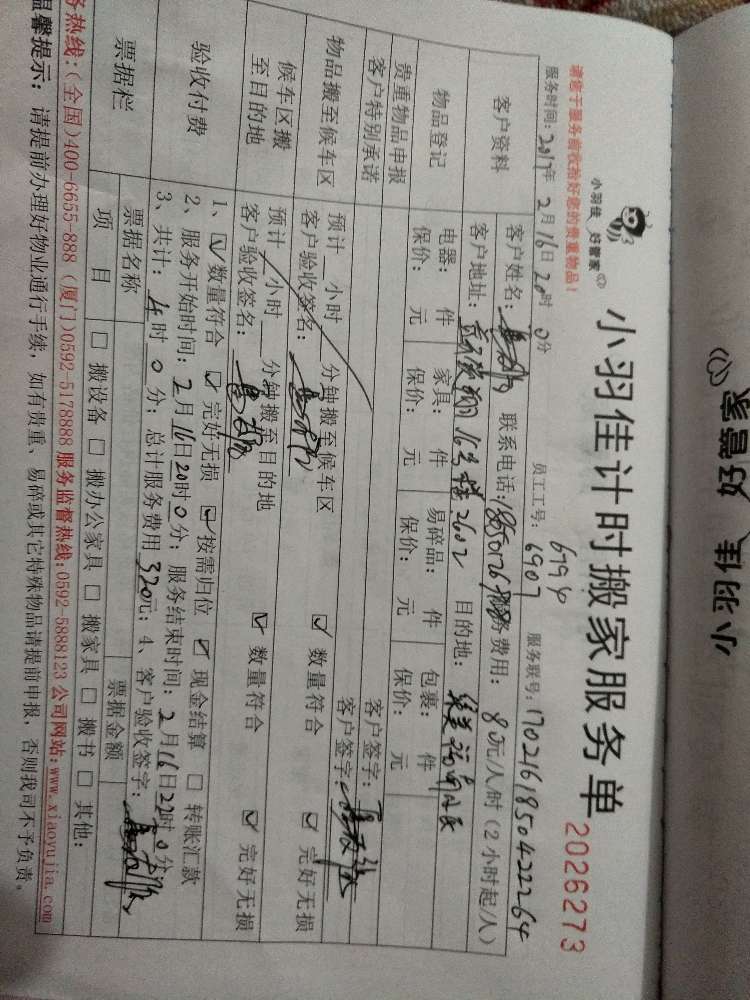 小羽佳 好管家
小羽佳 好管家
小羽佳计时搬家服务单
2026273
请您于服务前收拾好您的贵重物品!
员工工号: 6794 6907
服务联号: 17021618504222264
服务时间: 2017年 2月 16日 20时 0分
客户资料
客户姓名:
联系电话:
服务费用: 80元/人/时(2小时起/人)
客户地址: 16号楼2602
目的地:
物品登记
电器: 件 家具: 件 易碎品: 件 包裹: 件
保价: 元 保价: 元 保价: 元 保价: 元
贵重物品申报
客户签字:
客户特别承诺
客户签字:
物品搬至候车区
预计 小时 分钟搬至候车区
客户验收签名:
☑ 数量符合 ☑ 完好无损
候车区搬至目的地
预计 小时 分钟搬至目的地
客户验收签名:
☑ 数量符合 ☑ 完好无损
验收付费
1、☑ 数量符合 ☑ 完好无损 ☑ 按需归位 ☑ 现金结算 □ 转账汇款
2、服务开始时间: 2月16日20时0分; 服务结束时间: 2月16日22时0分
3、共计: 4时0分; 总计服务费用320元; 4、客户验收签字:
票据栏
票据名称
票据金额
项目
□ 搬设备 □ 搬办公家具 □ 搬家具 □ 搬书 □ 其他:
务热线:(全国)400-6655-888 (厦门)0592-5178888 服务监督热线:0592-5888123 公司网站:www.xiaoyujia.com
温馨提示: 请提前办理好物业通行手续, 如有贵重、易碎或其它特殊物品请提前申报, 否则我司不予负责。